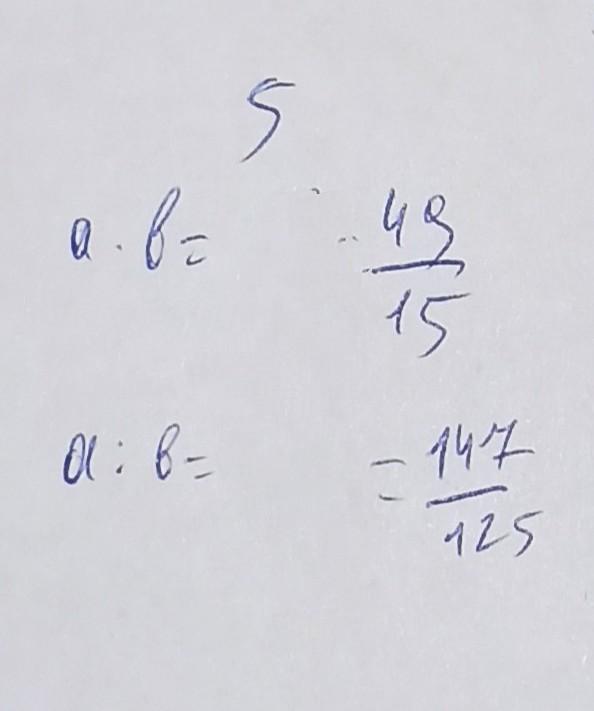 5
a · b = 49/15
a : b = = 147/125